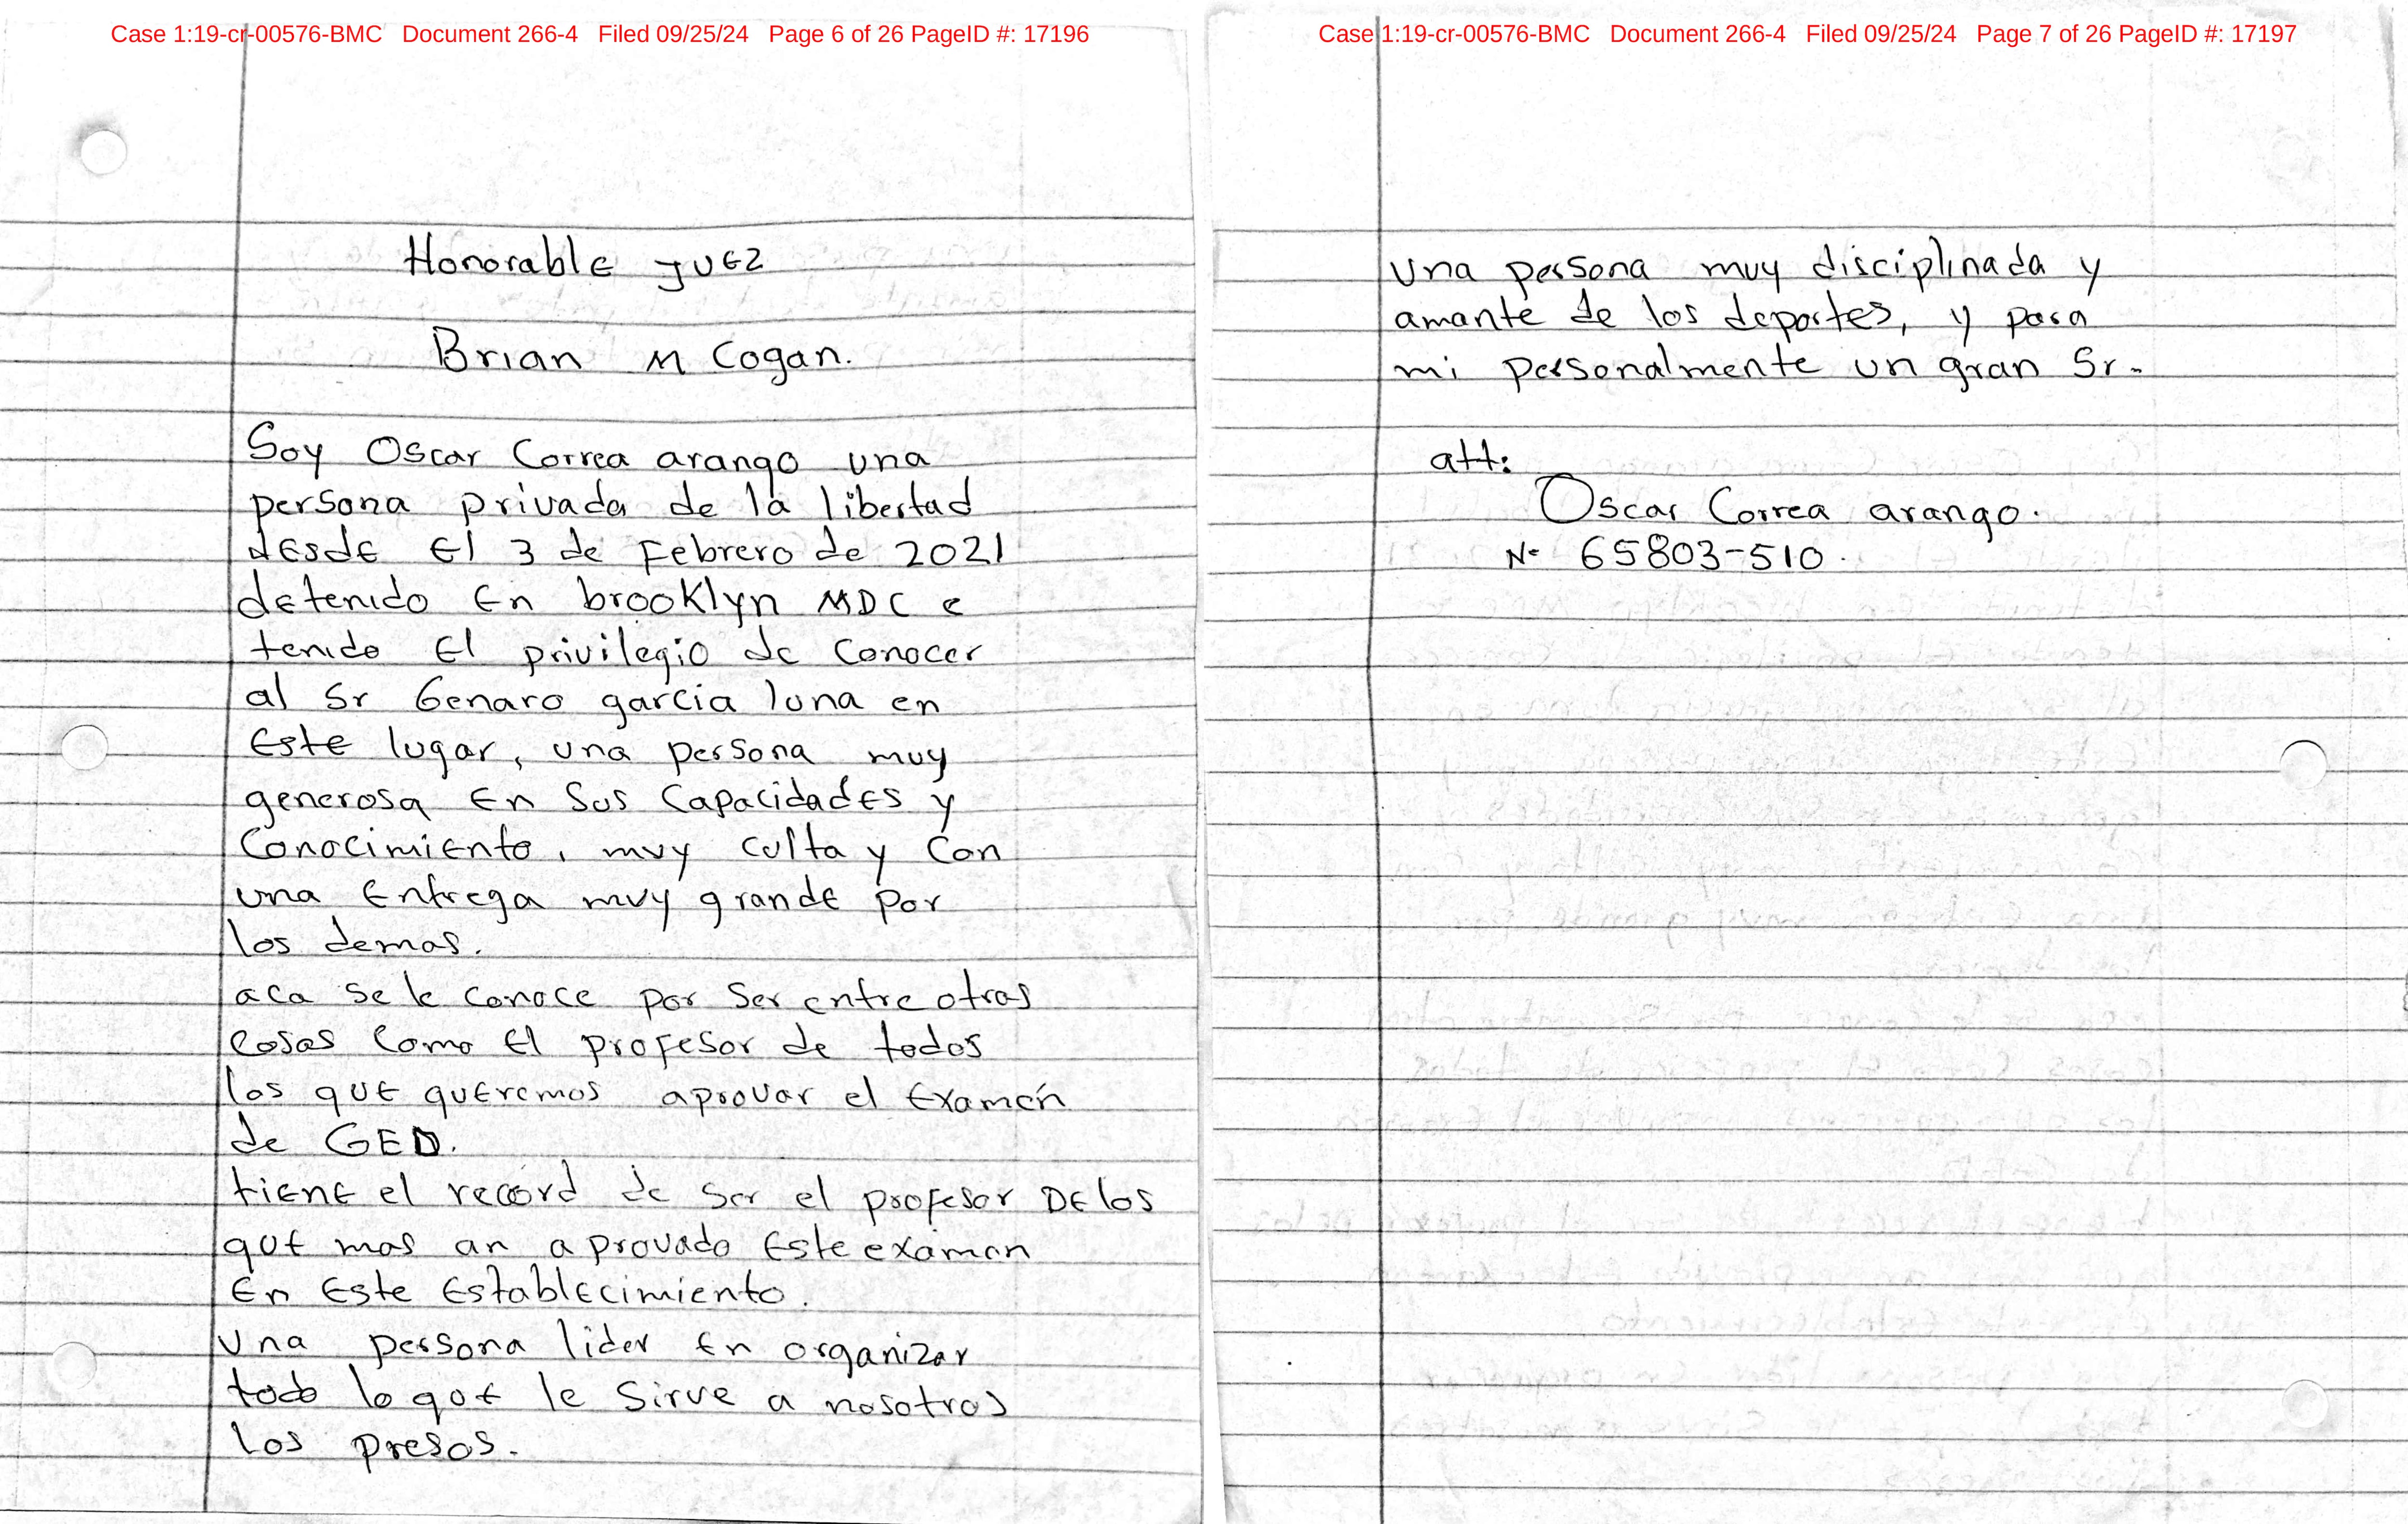 Case 1:19-cr-00576-BMC Document 266-4 Filed 09/25/24 Page 6 of 26 PageID #: 17196
Honorable juez
Brian M Cogan.
Soy Oscar Correa arango una
persona privada de la libertad
desde El 3 de Febrero de 2021
detenido En brooklyn MDC e
tenido El privilegio de Conocer
al Sr Genaro garcia luna en
Este lugar, una persona muy
generosa En Sus Capacidades y
Conocimiento, muy culta y Con
una Entrega muy grande por
los demas.
aca se le conoce por Ser entre otras
Cosas Como El profesor de todos
los que queremos aprovar el Examén
de GED.
tiene el record de Ser el profesor DE los
que mas an aprovado Este examen
En Este Establecimiento.
Una persona lider En organizar
todo lo que le Sirve a nosotros
los presos.
Case 1:19-cr-00576-BMC Document 266-4 Filed 09/25/24 Page 7 of 26 PageID #: 17197
una persona muy disciplinada y
amante de los deportes, y para
mi personalmente un gran Sr.
att:
Oscar Correa arango.
No 65803-510.